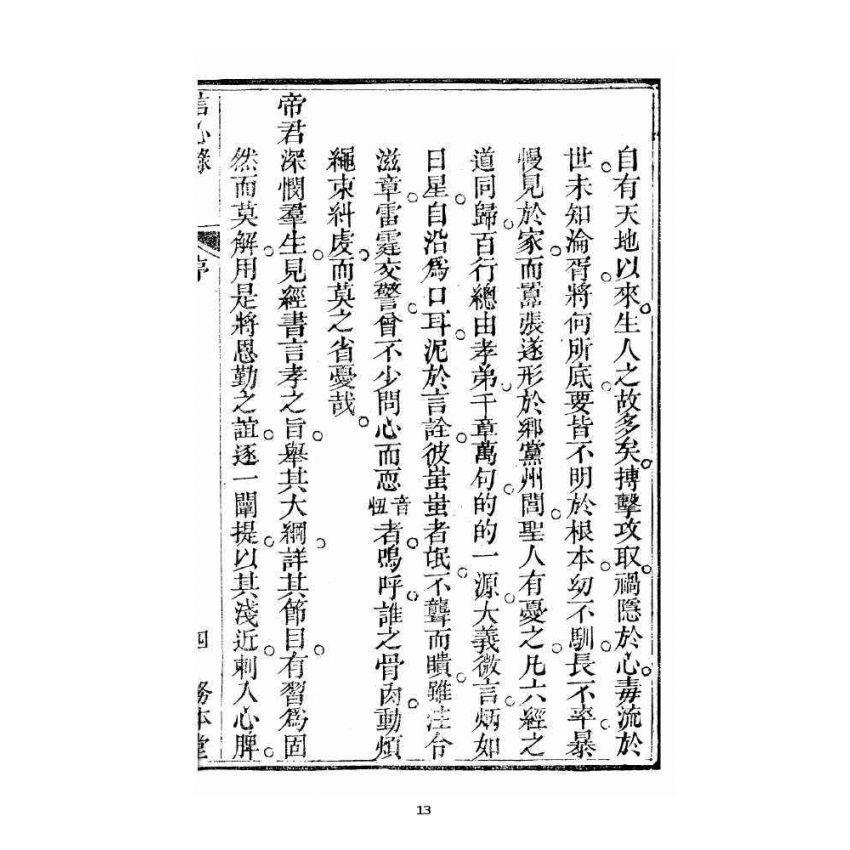 自有天地以來生人之故多矣搏擊攻取禍隱於心毒流於
世未知淪胥將何所底要皆不明於根本幼不馴長不率暴
慢見於家而囂張遂形於鄉黨州閭聖人有憂之凡六經之
道同歸百行總由孝弟千章萬句的的一源大義微言炳如
日星自沿爲口耳泥於言詮彼蚩蚩者氓不聾而瞶雖法令
滋章雷霆交警曾不少問心而恧音忸者嗚呼誰之骨肉動煩
繩束糾虔而莫之省憂哉
帝君深憫羣生見經書言孝之旨舉其大綱詳其節目有習爲固
然而莫解用是將恩勤之誼逐一闡提以其淺近刺人心脾
信心錄 序 四 務本堂
13